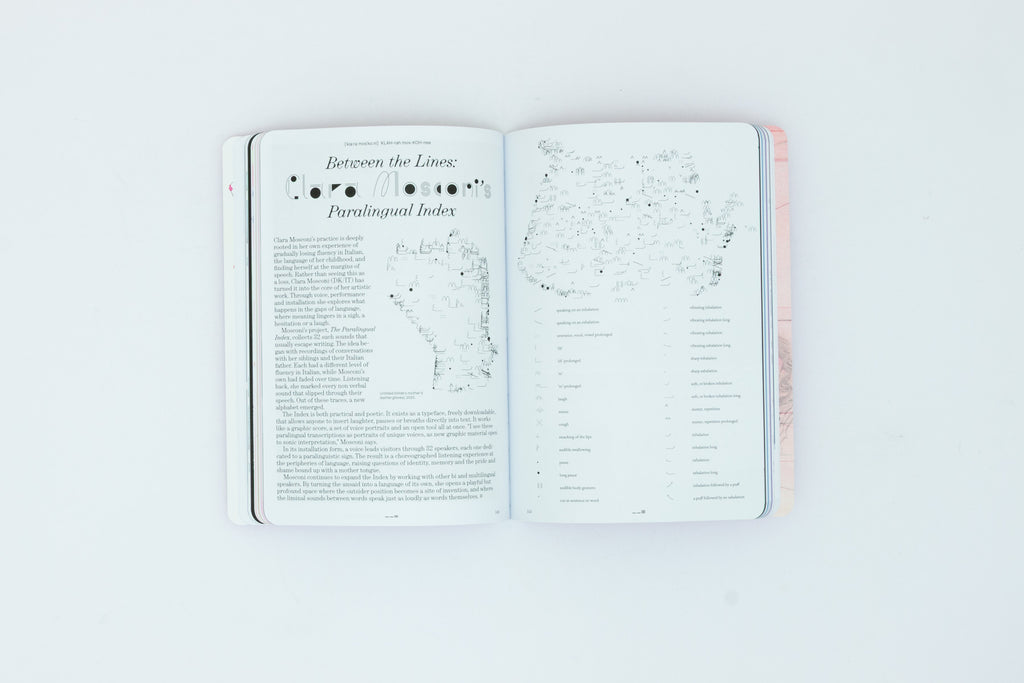 Between the Lines:
Clara Mosconi's
Paralingual Index
Clara Mosconi's practice is deeply
rooted in her own experience of
gradually losing fluency in Italian,
the language of her childhood, and
finding herself at the margins of
speech. Rather than seeing this as
a loss, Clara Mosconi (DK/IT) has
turned it into the core of her artistic
work. Through voice, performance
and installation she explores what
happens in the gaps of language,
where meaning lingers in a sigh, a
hesitation or a laugh.
Mosconi's project, The Paralingual
Index, collects 32 such sounds that
usually escape writing. The idea be-
gan with recordings of conversations
with her siblings and their Italian
father. Each had a different level of
fluency in Italian, while Mosconi's
own had faded over time. Listening
back, she marked every non verbal
sound that slipped through their
speech. Out of these traces, a new
alphabet emerged.
The Index is both practical and poetic. It exists as a typeface, freely downloadable,
that allows anyone to insert laughter, pauses or breaths directly into text. It works
like a graphic score, a set of voice portraits and an open tool all at once. "I see these
paralingual transcriptions as portraits of unique voices, as new graphic material open
to sonic interpretation," Mosconi says.
In its installation form, a voice leads visitors through 32 speakers, each one dedi-
cated to a paralinguistic sign. The result is a choreographed listening experience at
the peripheries of language, raising questions of identity, memory and the pride and
shame bound up with a mother tongue.
Mosconi continues to expand the Index by working with other bi and multilingual
speakers. By turning the unsaid into a language of its own, she opens a playful but
profound space where the outsider position becomes a site of invention, and where
the liminal sounds between words speak just as loudly as words themselves.
speaking on an inhalation
speaking on an exhalation
prolonged
prolonged
laugh
cough
smacking of the lips
audible swallowing
pause
long pause
audible body gestures
cut in sentence or word
vibrating inhalation
vibrating inhalation long
vibrating inhalation long
sharp inhalation
sharp inhalation
soft, or broken inhalation
soft, or broken inhalation long
inhalation
inhalation long
inhalation long
inhalation followed by a puff
a puff followed by an inhalation